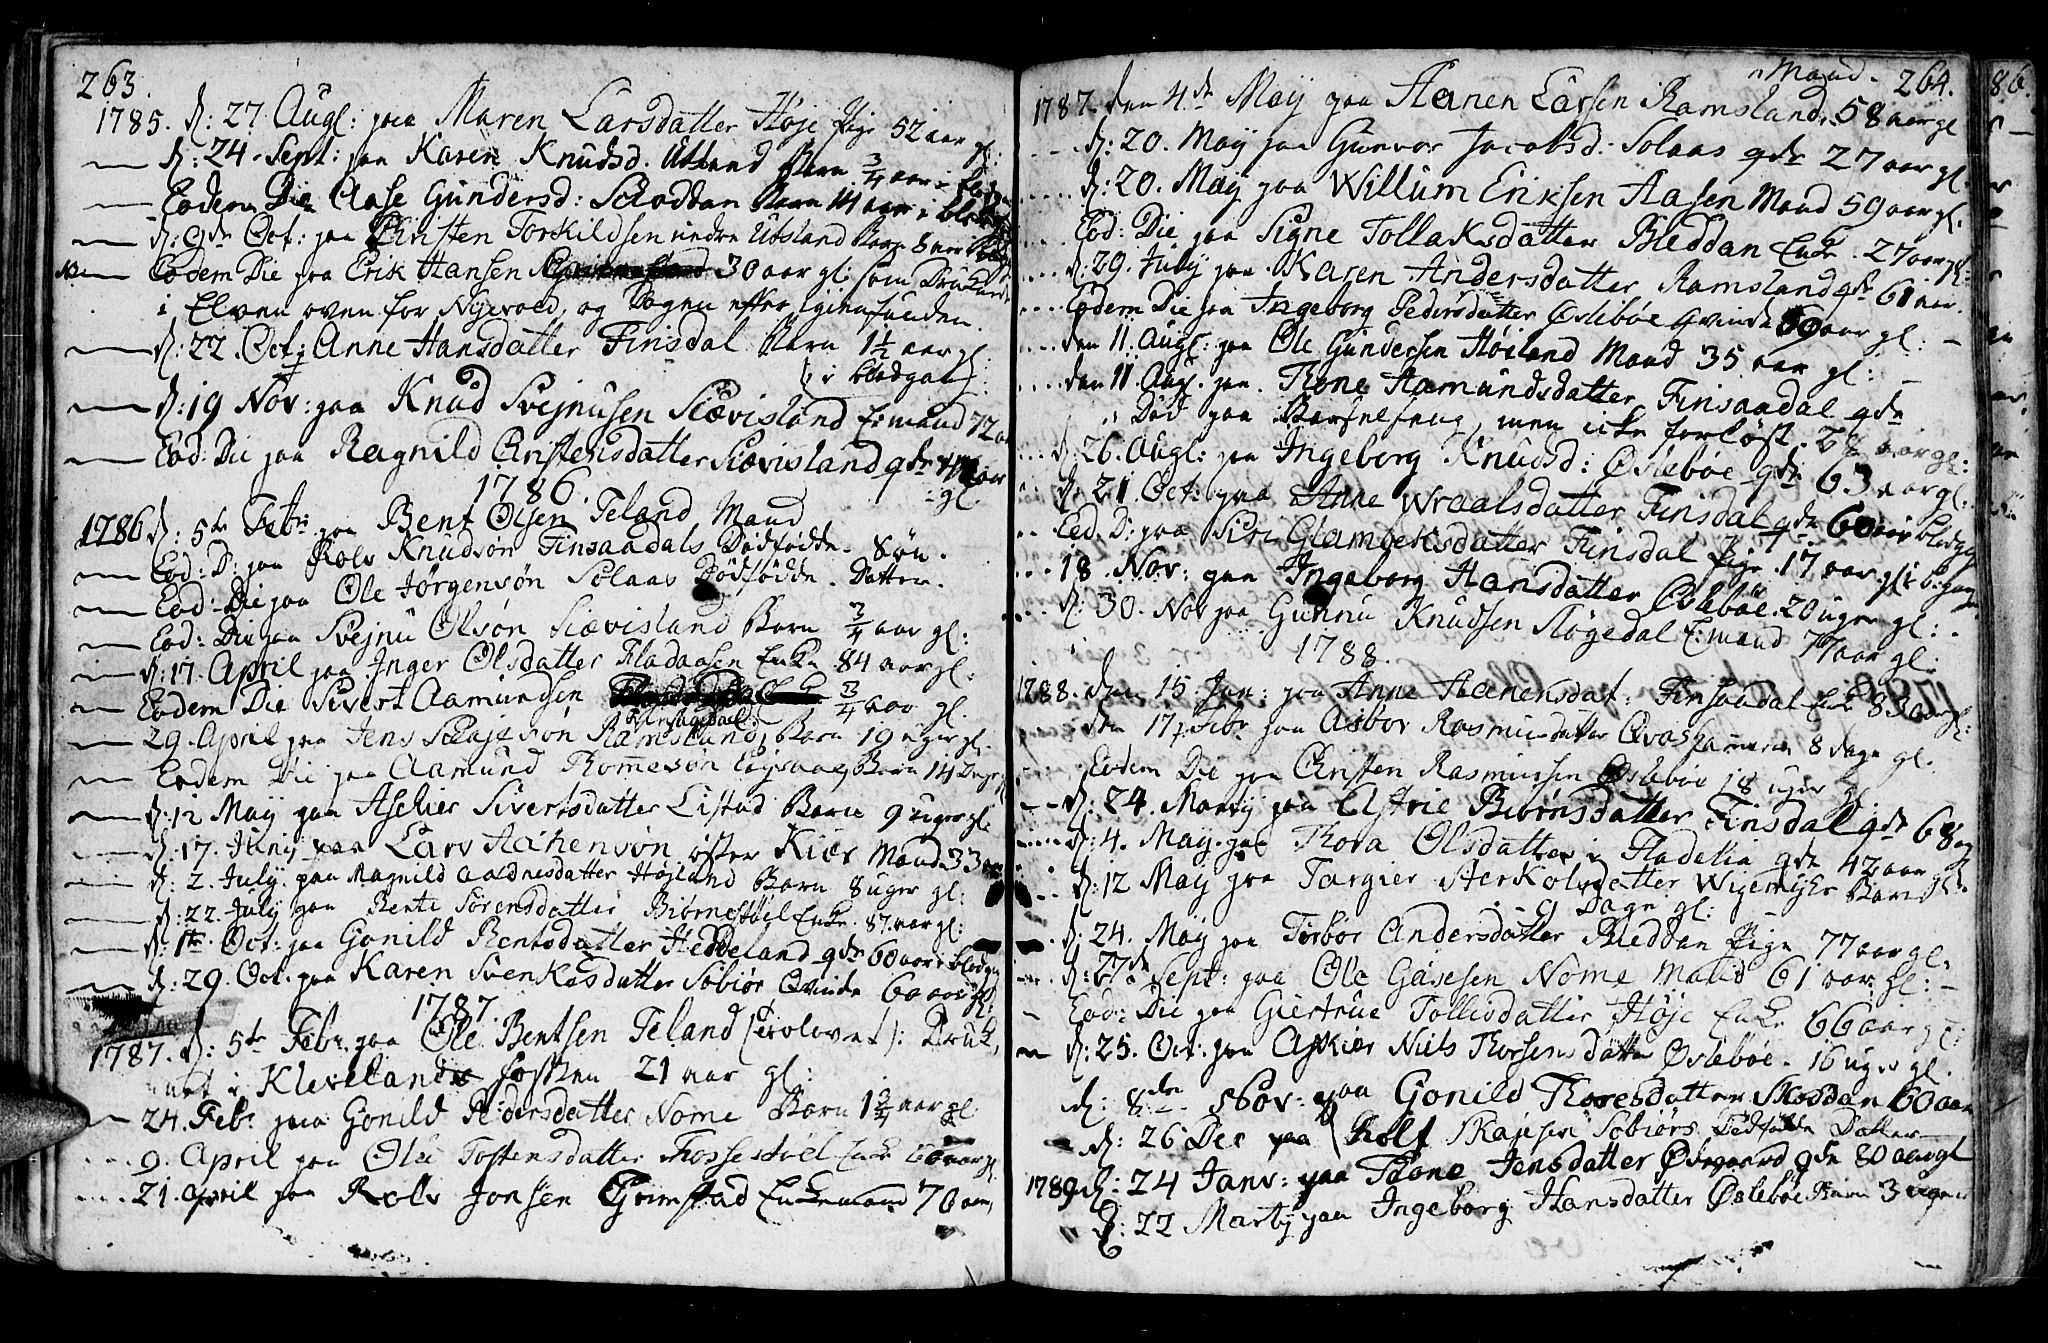 263.
1785. d: 27 Augl: paa Maren Larsdatter Høje Pige 52 aar gl:
d: 24. Sept: paa Karen Knudsd. Utland Barn 3/4 aar i
Eodem Die Aase Gundersd: Schoddan Barn 14 aar i
d: 9de Oct: paa Christen Torkildsen indre Ubsland Barn 8 aar
Eodem Die paa Erik Hansen 30 aar gl: som Drukned
i Elven oven for Nyevoed, og Dagen efter igienfunden.
d: 22. Oct: Anne Hansdatter Finsdal Barn 1 1/2 aar gl:
(i blodgan):
d: 19 Nov: paa Knud Svejnusen Siævisland E:mand 72
Eod: Die paa Ragnild Christensdatter Siævisland qde aar
gl.
1786.
1786 d: 5te Febr: paa Bent Olsen Teland Mand
Eod: D: paa Rolv Knudsøn Finsaadals Dødfødde Søn.
Eod: Die paa Ole Jørgensøn Solaas Dødfødde Datter.
Eod: Die paa Svejnu Olsøn Siævisland Barn 3/4 aar gl:
d: 17. April paa Inger Olsdatter Fladaasen Enke 84 aar gl.
Eodem Die Sivert Aamundsen 3/4 aar gl.
29. April paa Jens søn Ramsland, Barn 19 uger gl.
Eodem Die paa Aamund Thommesøn Barn 14 Dage
d: 12 May paa Aschier Sivertsdatter Listad Barn 9 uger gl:
d: 17. Junij paa Lars Aanensøn øster Kiær Mand 33 aar
d: 2. July. paa Ragnild Aadnesdatter Højland Barn 8 uger gl:
d: 22. July paa Bente Sørensdatter Biørnestøel Enke. 87. aar gl:
d: 1te Oct: paa Gonild Bentsdatter Heddeland qde 60 aar i blodg
d: 29. Oct: paa Karen Svenkesdatter Søbiør Qvinde 60 aar gl:
1787.
1787. d: 5te Febr. paa Ole Bentsen Teland (trolovet): Druk-
net i Klevelands fossen 21 aar gl:
24. Febr paa Gonild Pedersdatter Nome Barn 1 3/4 aar gl.
9. April paa Ole Tostensdatter Fossestøel Enke 60 aar gl.
21. April paa Rolv Jonsen Grimstad Enkemand 70 aar,
Mand. 264.
1787. den 4de May paa Aanen Larsen Ramsland. 58 aar gl
d: 20. May paa Gunvor Jacobsd: Solaas qde 27 aar gl.
d: 20. May paa Willum Eriksen Aasen Mand 59 aar gl:
Eod: Die paa Signe Tollaksdatter Bleddan Enke. 27 aar gl:
d: 29. July paa. Karen Andersdatter Ramsland qde 61 aar.
Eodem Die paa Ingeborg Pedersdatter Øslebøe Qvinde aar gl:
den 11. Augl: paa Ole Gundersen Høiland Mand 35 aar gl:
den 11. Augl. paa. Thone Aamundsdatter Finsaadal qde
Død paa Barselseng, men icke forløst. aar gl:
d: 26. Augl: paa Ingeborg Knudsd: Øslebøe qde 63 aar gl.
d: 21. Oct: paa Anne Wraalsdatter Finsdal qde 60 aar i blodgg
Eod. D: paa Siri Glambeksdatter Finsdal Pige. 17 aar gl:
18. Nov: paa Ingeborg Hansdatter Øslebøe. 20 uger gl:
d: 30. Nov paa Gunnu Knudsen Høgedal E:mand 77 aar gl:
1788.
1788. den 15. Jan: paa Anne Aanensdat: Finsaadal Enke 83 aar gl:
den 17. Febr paa Aasbor Rasmusdatter Qvas 8 dage gl.
Eodem Die paa Christen Rasmussen Øslebøe 18 uger gl
d: 24. Martij paa Astrie Biørnsdatter Finsdal qde 68 aar
d: 4. May. paa Thora Olsdatter Fladelia qde 42 aar gl:
d: 12 May paa Targier Aerkolsdatter Wigemyhr Barn
9 Dage gl:
d: 24. May paa Torbor Andersdatter Bleddan Pige 77 aar gl:
d: 27de Sept: paa Ole Gusesen Nome Mand 61 aar gl:
Eod: Die paa Giertrue Tollisdatter Høje Enke 66 aar gl:
d: 25. Oct: paa Askier Niels Thorsens datter Øslebøe. 16 uger gl.
d: 8de Nov: paa Gonild Thoresdatter Skoddan 60 aar
d: 26 Dec paa Rolf Skajesen Søbiørs Dødfødde Datter
1789 d: 24 Janv: paa Thone Jensdatter Ødegaard qde 80 aar gl
d: 22 Martij paa Ingeborg Hansdatter Øslebøe Barn 3 uger